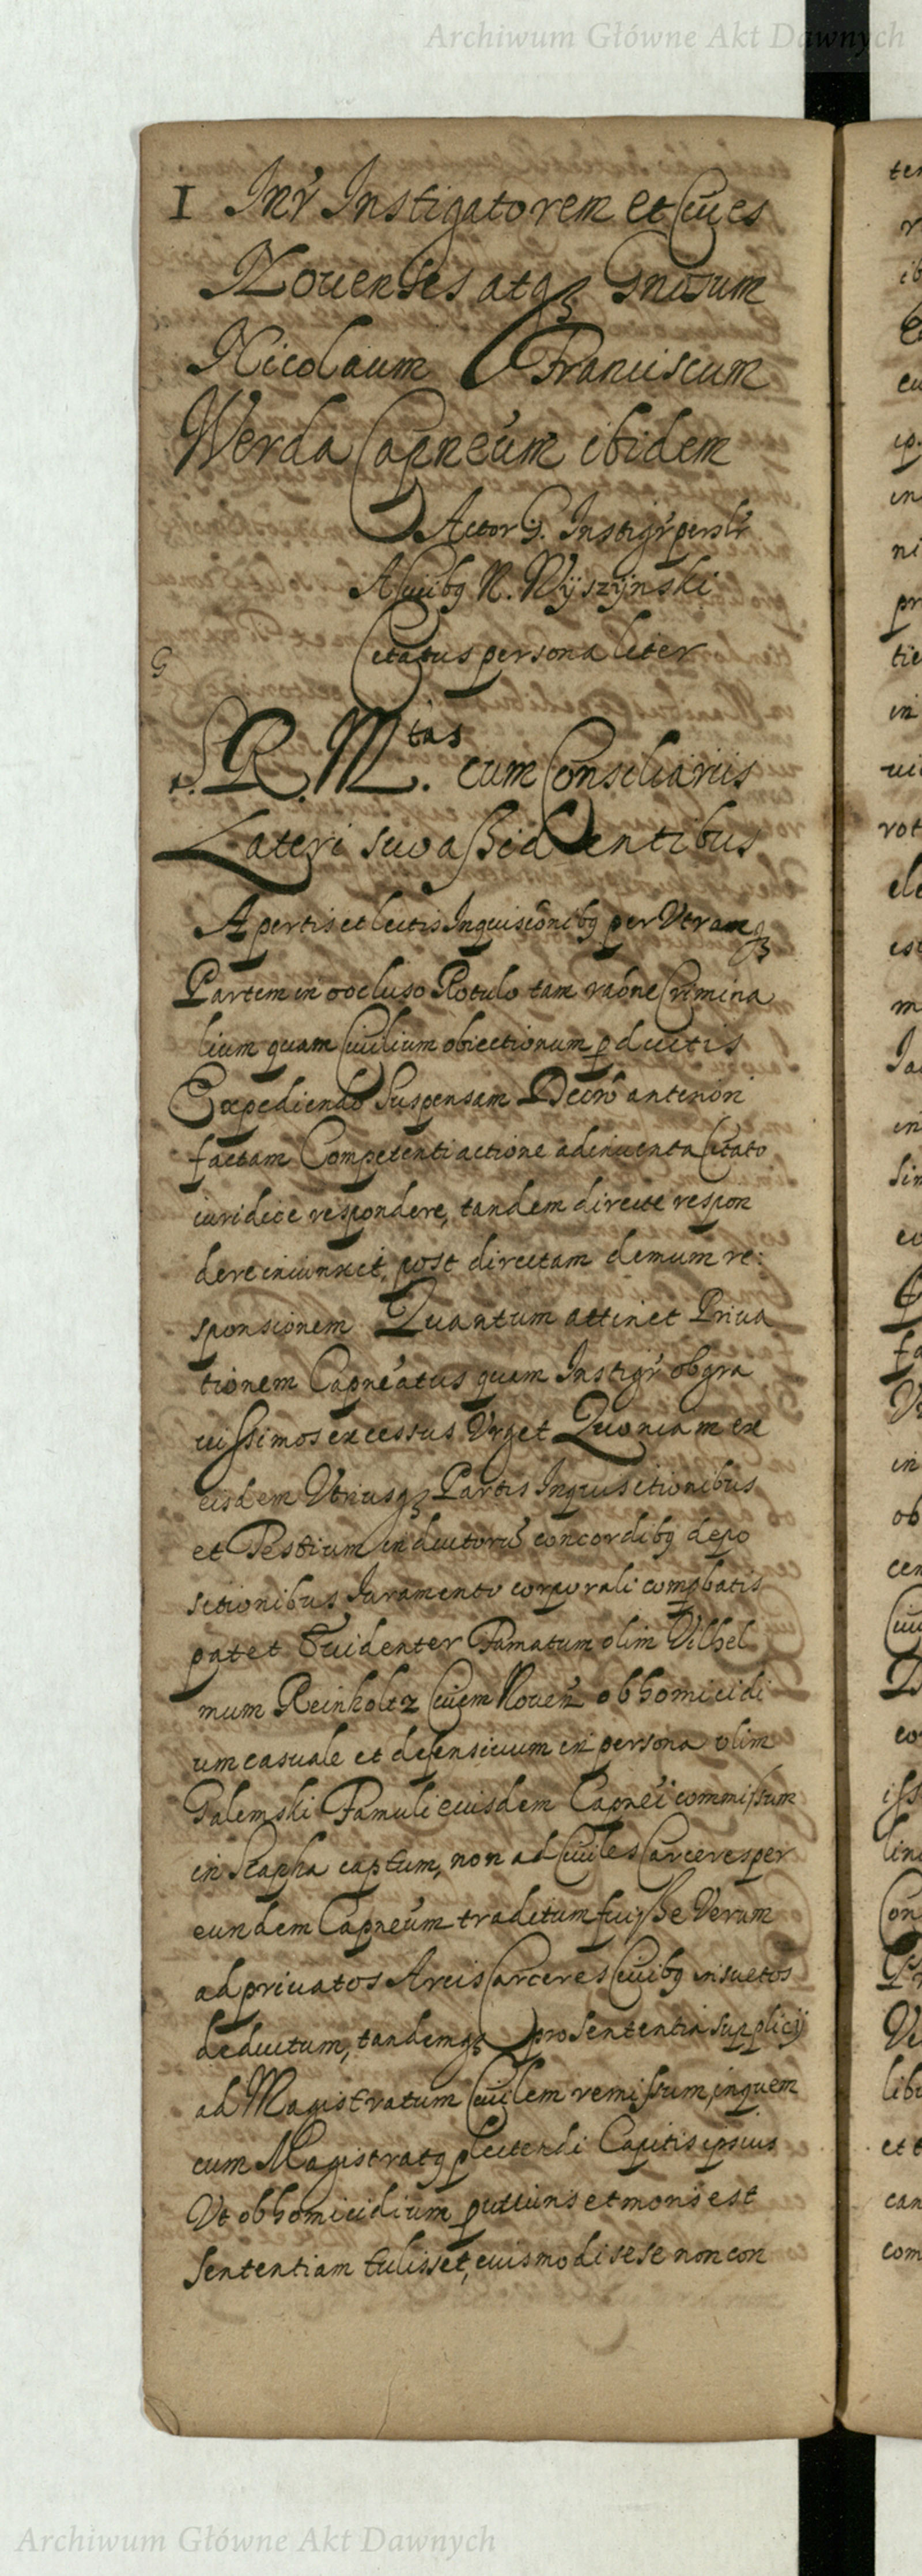 Archiwum Główne Akt Dawnych
1 Inr Instigatorem et Ciues
Nouenses atqȝ Gnosum
Nicolaum Franciscum
Werda Capneum ibidem
Actor G. Instigr persler
A Ciuibq N. Wyszynski
Citatus personaliter
G
S. R. M.tas cum Consiliariis
Lateri suo assidentibus
Apertis et lectis Inquisconibq per Vtramqȝ
Partem in occluso Rotulo tam raone Crimina
lium quam Ciuilium obiectionum pductis
Expediendo Suspensam Decro anteriori
factam Competenti actione adinuenta Citato
iuridice respondere, tandem directe respon
dere iniunxit, post directam demum re:
sponsionem Quantum attinet Priua
tionem Capneatus quam Instigr ob gra
uissimos excessus Vrget Quoniam ex
eisdem Vtriusqȝ Partis Inquisitionibus
et Testium inductoru concordibq depo
sitionibus Iuramento corporali compbatis
patet Euidenter Famatum olim Vilhel
mum Reinholtz Ciuem Nouen ob homicidi
um casuale et defensiuum in persona olim
Galemski Famuli eiusdem Capnei commissum
in Scapha captum, non ad Ciuiles Carceres per
eundem Capneum traditum fuisse Verum
ad priuatos Arcis Carceres Ciuibq insuetos
deductum, tandemqȝ pro Sententia supplicij
ad Magistratum Ciuilem remissum, in quem
cum Magistratq plectendi Capitis ipsius
Vt ob homicidium puttiuns et moris est
Sententiam tulisset, euismodi sese non con
Archiwum Główne Akt Dawnych